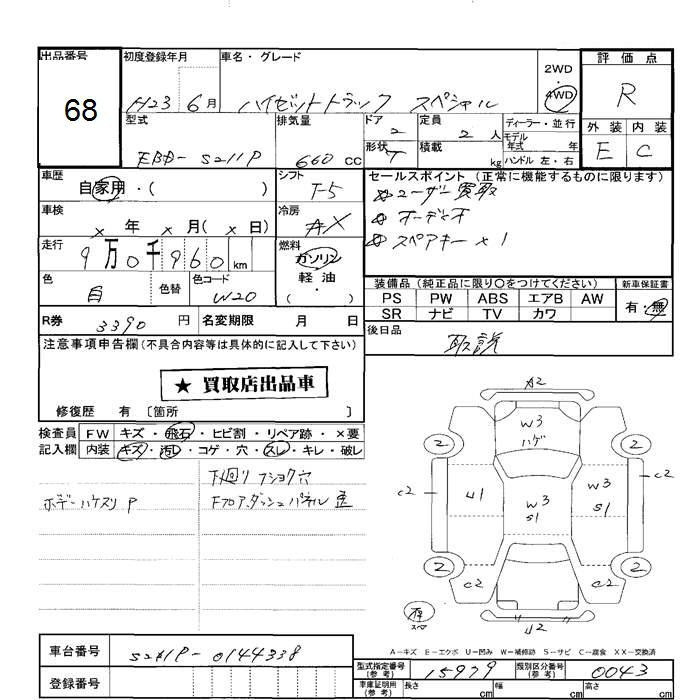 出品番号 初度登録年月 車名・グレード 2WD 評価点
68 H23 6月 ハイゼットトラック スペシャル 4WD R
型式 排気量 ドア 定員 ディーラー・並行 外装 内装
EBD-S211P 660 cc 2 2人 モデル年式 年 E C
形状 T 積載 kg ハンドル 左・右
車歴 シフト セールスポイント (正常に機能するものに限ります)
自家用・( ) F-5 ユーザー買取
車検 冷房 オーディオ
× 年 × 月( × 日) AX スペアキー×1
走行 燃料
9万0千960km ガソリン
色 色替 色コード 軽油 装備品 (純正品に限り○をつけてください) 新車保証書
白 W20 ( ) PS PW ABS エアB AW 有・無
SR ナビ TV カワ
R券 3390 円 名変期限 月 日 後日品
取説
注意事項申告欄(不具合内容等は具体的に記入して下さい)
★ 買取店出品車
修復歴 有 〔箇所 〕
検査員 FW キズ・飛石・ヒビ割・リペア跡・×要
記入欄 内装 キズ・汚レ・コゲ・穴・スレ・キレ・破レ
下廻り フショク穴
ボデーハケヌリ P
Fフロア.ダッシュパネル 歪
A2
W3
ハゲ
2 2
C2 U1 W3 S1 W3 S1 C2
2 2
C2 C2
U2
スペ
A-キズ E-エクボ U-凹み W-補修跡 S-サビ C-腐食 XX-交換済
車台番号 S211P-0144338
型式指定番号 (参考) 15979 類別区分番号 (参考) 0043
登録番号
車庫証明用 (参考) 長さ cm 幅 cm 高さ cm